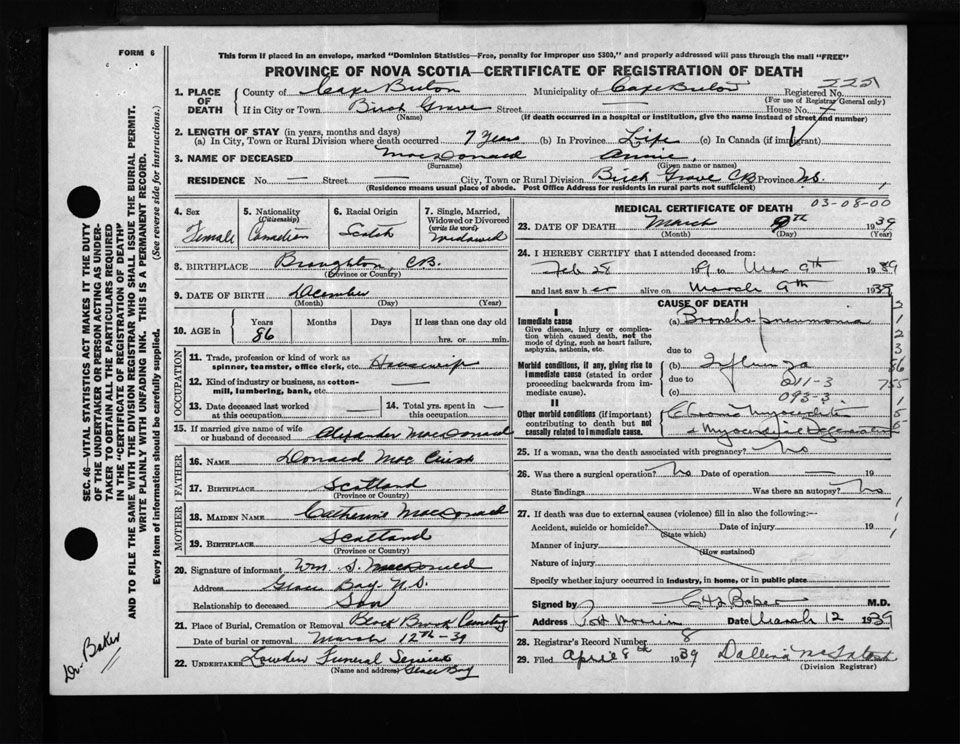 FORM 6
This form if placed in an envelope, marked "Dominion Statistics—Free, penalty for improper use $300," and properly addressed will pass through the mail "FREE"
PROVINCE OF NOVA SCOTIA—CERTIFICATE OF REGISTRATION OF DEATH
1. PLACE OF DEATH
County of Cape Breton Municipality of Cape Breton Registered No. 2221
(For use of Registrar General only)
If in City or Town Birch Grove Street — House No.
(Name) (If death occurred in a hospital or institution, give the name instead of street and number)
2. LENGTH OF STAY (in years, months and days)
(a) In City, Town or Rural Division where death occurred 7 Years (b) In Province Life (c) In Canada (if immigrant)
3. NAME OF DECEASED MacDonald Annie,
(Surname) (Given name or names)
RESIDENCE No. — Street — City, Town or Rural Division Birch Grove C.B. Province N.S.
(Residence means usual place of abode. Post Office Address for residents in rural parts not sufficient)
4. Sex Female
5. Nationality (Citizenship) Canadian
6. Racial Origin Scotch
7. Single, Married, Widowed or Divorced (write the word) Widowed
8. BIRTHPLACE Broughton, C.B.
(Province or Country)
9. DATE OF BIRTH December
(Month) (Day) (Year)
10. AGE in Years 86 Months Days If less than one day old hrs. or min.
OCCUPATION
11. Trade, profession or kind of work as spinner, teamster, office clerk, etc. Housewife
12. Kind of industry or business, as cotton-mill, lumbering, bank, etc. —
13. Date deceased last worked at this occupation —
14. Total yrs. spent in this occupation —
15. If married give name of wife or husband of deceased Alexander MacDonald
FATHER
16. NAME Donald Mac
17. BIRTHPLACE Scotland
(Province or Country)
MOTHER
18. MAIDEN NAME Catherine MacDonald
19. BIRTHPLACE Scotland
(Province or Country)
20. Signature of informant Wm. S. MacDonald
Address Glace Bay N.S.
Relationship to deceased Son
21. Place of Burial, Cremation or Removal Black Brook Cemetery
Date of burial or removal March 12th - 39
22. UNDERTAKER Lowden Funeral Service
(Name and address) Glace Bay
MEDICAL CERTIFICATE OF DEATH 03-08-00
23. DATE OF DEATH March 9th 1939
(Month) (Day) (Year)
24. I HEREBY CERTIFY that I attended deceased from:
Feb 28 1939 to Mar 9th 1939
and last saw her alive on March 9th 1939
CAUSE OF DEATH
I
Immediate cause
Give disease, injury or complication which caused death, not the mode of dying, such as heart failure, asphyxia, asthenia, etc.
(a) Broncho pneumonia
due to
Morbid conditions, if any, giving rise to immediate cause (stated in order proceeding backwards from immediate cause).
(b) Influenza
due to 011-3
(c) 093-3
II
Other morbid conditions (if important) contributing to death but not causally related to immediate cause.
Chronic Myocarditis
& Myocardial Degeneration
25. If a woman, was the death associated with pregnancy? No
26. Was there a surgical operation? No Date of operation — 19
State findings Was there an autopsy? No
27. If death was due to external causes (violence) fill in also the following:—
Accident, suicide or homicide? Date of injury 19
(State which)
Manner of injury
(How sustained)
Nature of injury
Specify whether injury occurred in industry, in home, or in public place
Signed by Baker M.D.
Address Port Morien Date March 12 1939
28. Registrar's Record Number 8
29. Filed April 8th 1939
(Division Registrar)
SEC. 46—VITAL STATISTICS ACT MAKES IT THE DUTY
OF THE UNDERTAKER OR PERSON ACTING AS UNDER-
TAKER TO OBTAIN ALL THE PARTICULARS REQUIRED
IN THE "CERTIFICATE OF REGISTRATION OF DEATH"
AND TO FILE THE SAME WITH THE DIVISION REGISTRAR WHO SHALL ISSUE THE BURIAL PERMIT.
WRITE PLAINLY WITH UNFADING INK. THIS IS A PERMANENT RECORD.
Every item of information should be carefully supplied. (See reverse side for instructions.)
Dr. Baker